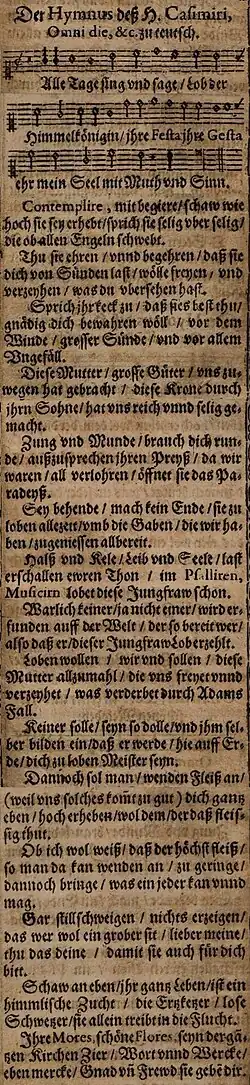 Der Hymnus deß H. Casimiri,
Omni die, &c. zu teutsch.
Alle Tage sing vnd sage / Lob der
Himmelkönigin / jhre Festa jhre Gesta
ehr mein Seel mit Muth vnd Sinn.
Contemplire, mit begiere / schaw wie
hoch sie sey erhebt / sprich sie selig vber selig /
die ob allen Engeln schwebt.
Thu sie ehren / vnnd begehren / daß sie
dich von Sünden last / wölle freyen / vnd
verzeyhen / was du vbersehen hast.
Sprich jhr keck zu / daß sies best thu /
gnädig dich bewahren wöll / vor dem
Winde / grosser Sünde / vnd vor allem
Vngefäll.
Diese Mutter / grosse Güter / vns zu-
wegen hat gebracht / diese Krone durch
jhrn Sohne / hat vns reich vnnd selig ge-
macht.
Zung vnd Munde / brauch dich run-
de / außzusprechen jhren Preyß / da wir
waren / all verlohren / öffnet sie das Pa-
radeyß.
Sey behende / mach kein Ende / sie zu
loben allezeit / vmb die Gaben / die wir ha-
ben / zugeniessen allbereit.
Halß vnd Kele / Leib vnd Seele / last
erschallen ewren Thon / im Psalliren,
Musiciren lobet diese Jungfraw schon.
Warlich keiner / ja nicht einer / wird er-
funden auff der Welt / der so bereit wer /
also daß er / dieser Jungfraw Lob erzehlt.
Loben wollen / wir vnd sollen / diese
Mutter allzumahl / die vns freyet vnnd
verzeyhet / was verderbet durch Adams
Fall.
Keiner solle / seyn so dolle / vnd jhm sel-
ber bilden ein / daß er werde / hie auff Er-
de / dich zu loben Meister seyn.
Dannoch sol man / wenden Fleiß an /
(weil vns solches kom̃t zu gut) dich gantz
eben / hoch erheben / wol dem / der daß fleis-
sig thut.
Ob ich wol weiß / daß der höchst fleiß /
so man da kan wenden an / zu geringe /
dannoch bringe / was ein jeder kan vnnd
mag.
Gar stillschweigen / nichts erzeigen /
das wer wol ein grober sit / lieber meine /
thu das deine / damit sie auch für dich
bitt.
Schaw an eben / jhr gantz Leben / ist ein
himmlische Zucht / die Ertzketzer / lose
Schwetzer / sie allein treibt in die Flucht.
Ihre Mores, schöne Flores, seyn der gä-
tzen Kirchen Zier / Wort vnnd Wercke /
eben mercke / Gnad vñ Frewd sie gebē dir.